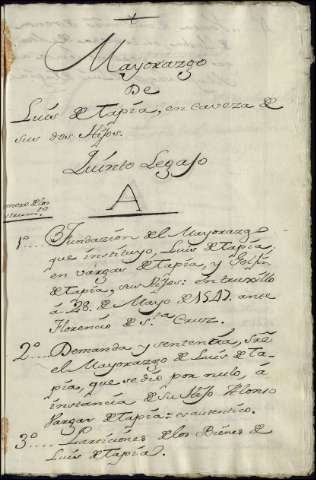 Mayorazgo
De
Luís de tapía, en caveza de
sus dos Hijos.
Quinto Legajo
A
1º.... Fundazión del Mayorazgo
que instituyo, Luís de tapía,
en vargas de tapía, y
de tapía, sus Hijos: en truxillo
á 28. de Mayo de 1547. ante
Florencio de Sta. Cruz.
2º.... Demanda y sentenzia, sre.
el Mayorazgo de Luís de ta-
pía, que se dio por nulo, á
instancia de su Hijo Alonso
Vargas de tapía: es autentico.
3º.... Particiones de los Bienes de
Luís de tapía.